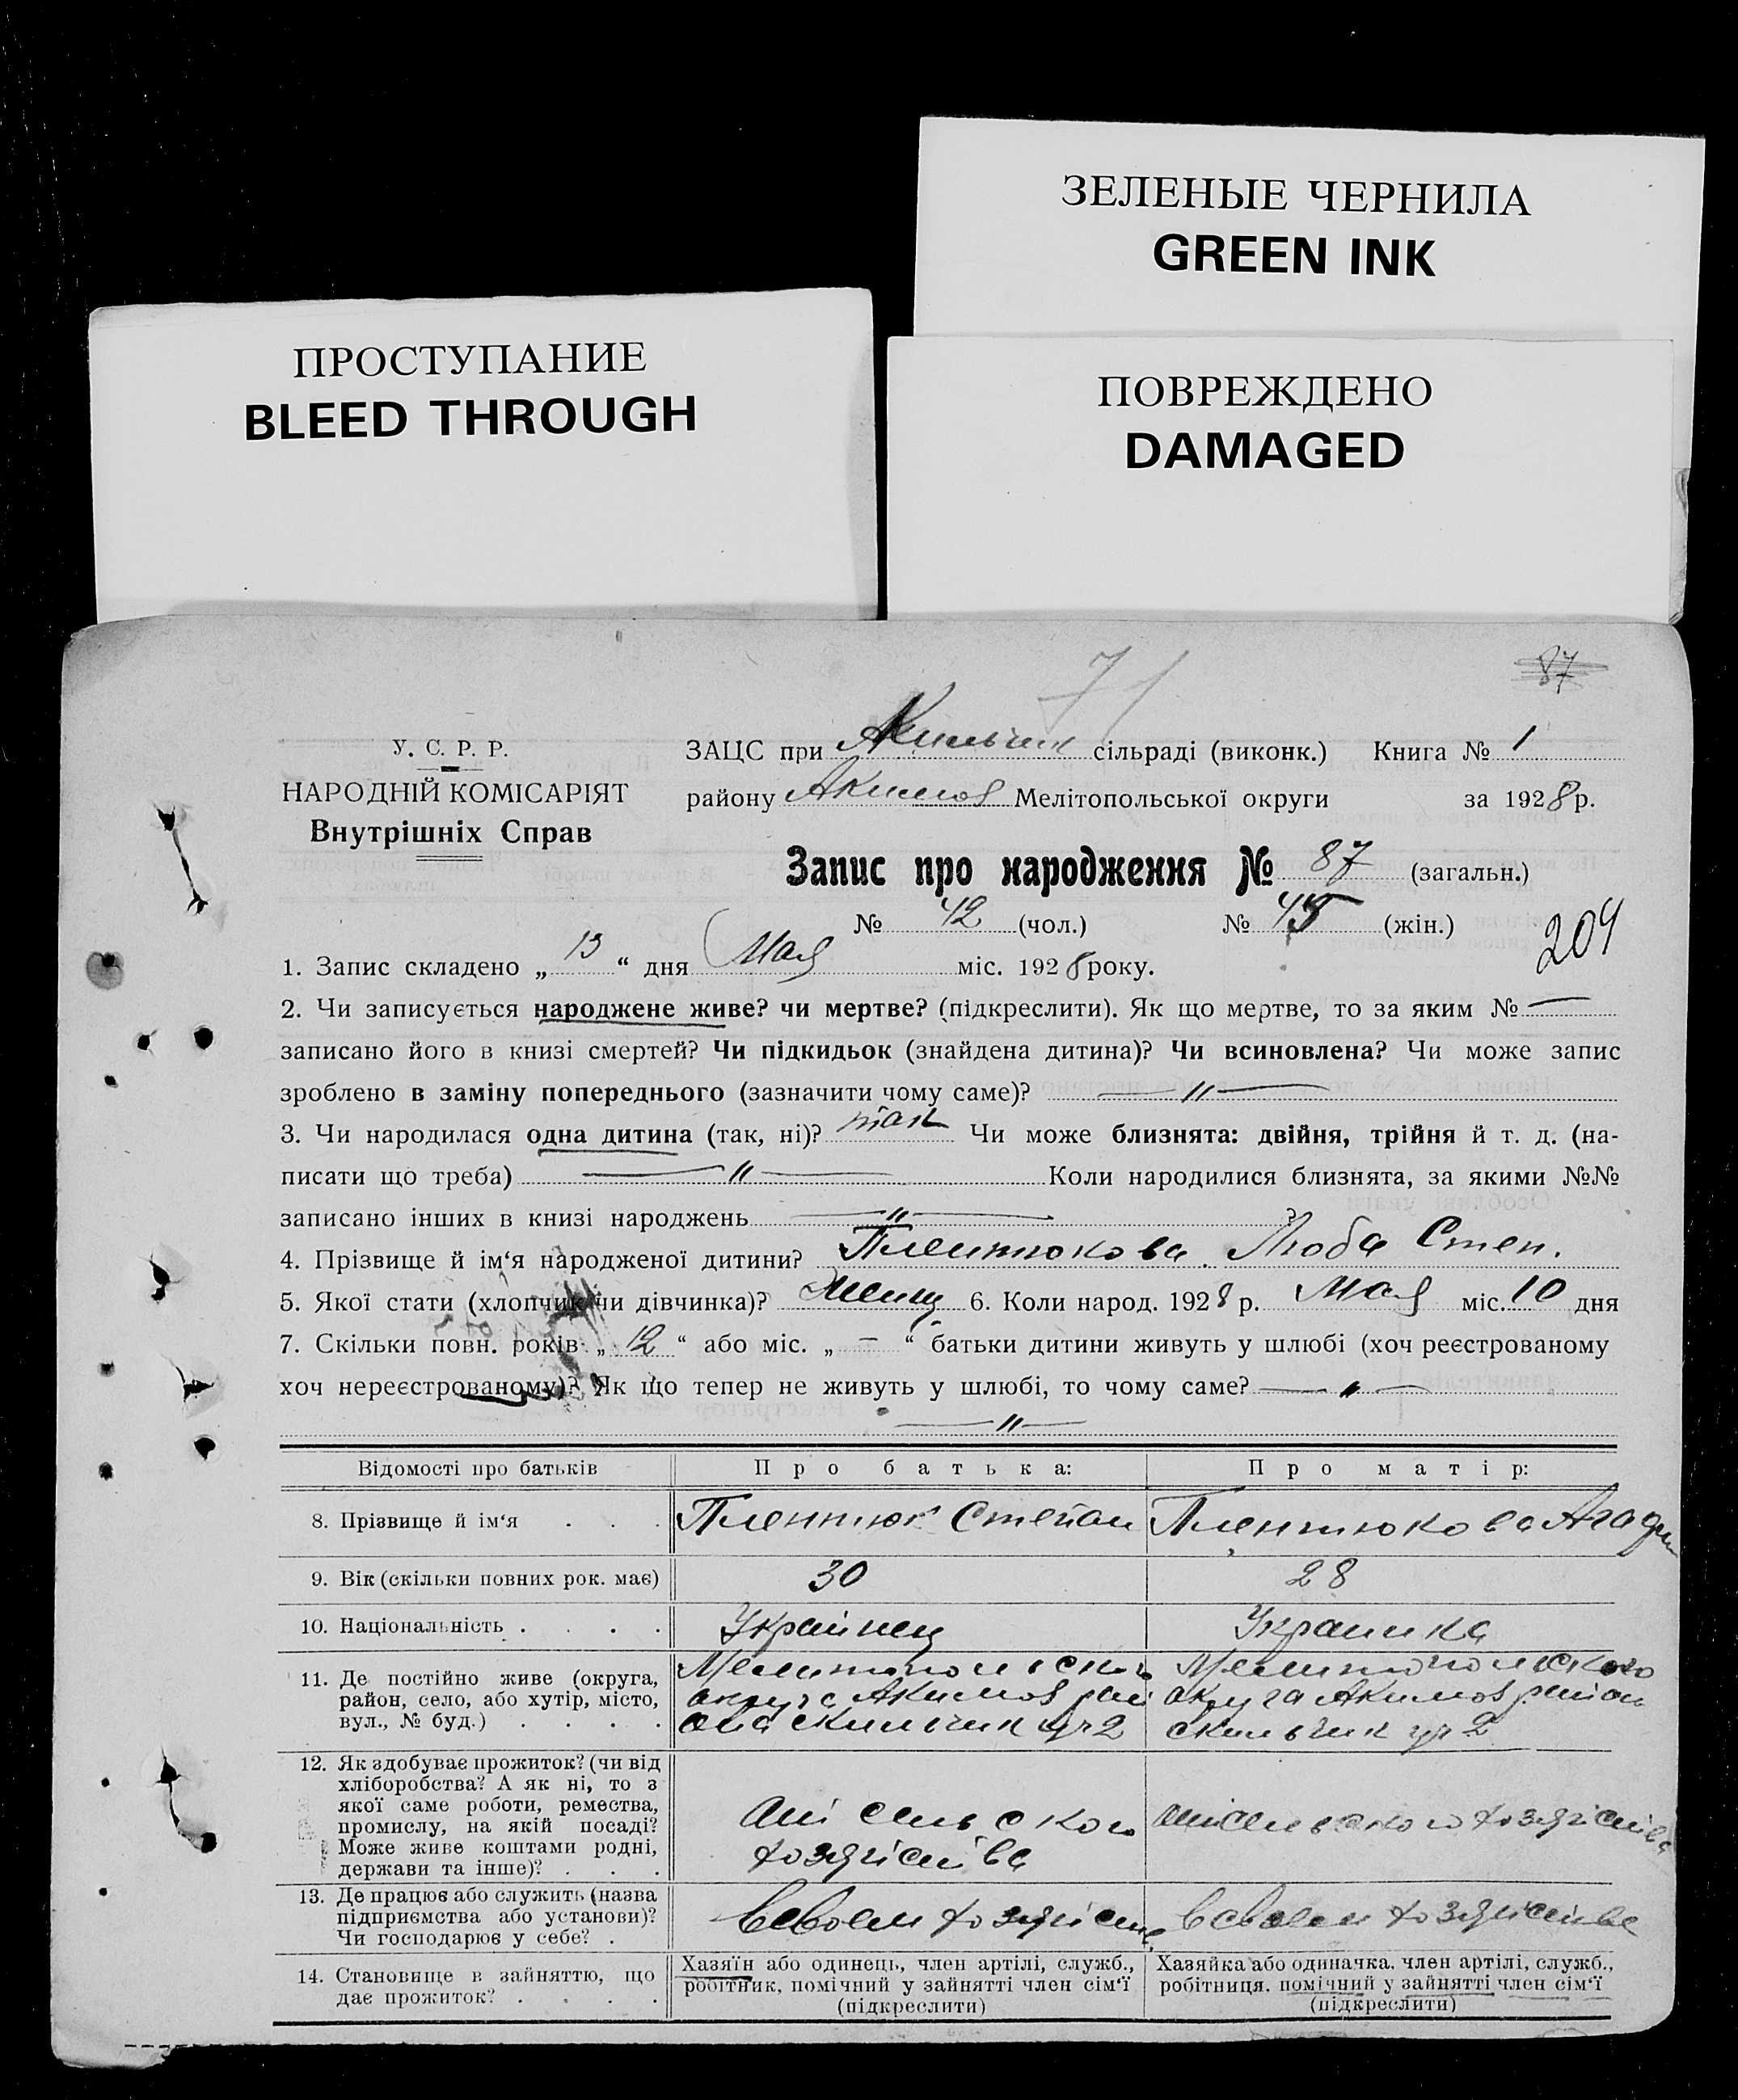 ЗЕЛЕНЫЕ ЧЕРНИЛА
GREEN INK
ПРОСТУПАНИЕ
BLEED THROUGH
ПОВРЕЖДЕНО
DAMAGED
71
87
У. С. Р. Р.
НАРОДНІЙ КОМІСАРІЯТ
Внутрішніх Справ
ЗАЦС при сільраді (виконк.) Книга № 1
району Акимов Мелітопольської округи за 1928 р.
Запис про народження № 87 (загальн.)
№ 42 (чол.) № 45 (жін.)
204
1. Запис складено „13“ дня Мая міс. 1928 року.
2. Чи записується народжене живе? чи мертве? (підкреслити). Як що мертве, то за яким № —
записано його в книзі смертей? Чи підкидьок (знайдена дитина)? Чи всиновлена? Чи може запис
зроблено в заміну попереднього (зазначити чому саме)? — " —
3. Чи народилася одна дитина (так, ні)? так Чи може близнята: двійня, трійня й т. д. (на-
писати що треба) — " — Коли народилися близнята, за якими №№
записано інших в книзі народжень — " — ?
4. Прізвище й ім‘я народженої дитини? Плентюкова Люба Степ.
5. Якої стати (хлопчик чи дівчинка)? Женщ 6. Коли народ. 1928 р. Мая міс. 10 дня
7. Скільки повн. років „12“ або міс. „—“ батьки дитини живуть у шлюбі (хоч реєстрованому
хоч нереєстрованому)? Як що тепер не живуть у шлюбі, то чому саме? — " —
— " —
Відомості про батьків Про батька: Про матір:
8. Прізвище й ім‘я . . . Плентюк Степан Плентюкова
9. Вік (скільки повних рок. має) 30 28
10. Національність . . . . Украинец Украинка
11. Де постійно живе (округа, Мелитопольского Мелитопольского
район, село, або хутір, місто, округа Акимов округа Акимов район
вул., № буд.) . . . . скильчик уч 2 скильчик уч 2
12. Як здобуває прожиток? (чи від
хліборобства? А як ні, то з
якої саме роботи, ремества,
промислу, на якій посаді? сельского сельского хозяйства
Може живе коштами родні, хозяйства
держави та інше)? . . .
13. Де працює або служить (назва
підприємства або установи)? в своем хозяйстве в своем хозяйстве
Чи господарює у себе? .
14. Становище в зайняттю, що Хазяїн або одинець, член артілі, служб., Хазяйка або одиначка, член артілі, служб.,
дає прожиток? . . . . робітник, помічний у зайнятті член сім‘ї робітниця, помічний у зайнятті член сім‘ї
(підкреслити) (підкреслити)